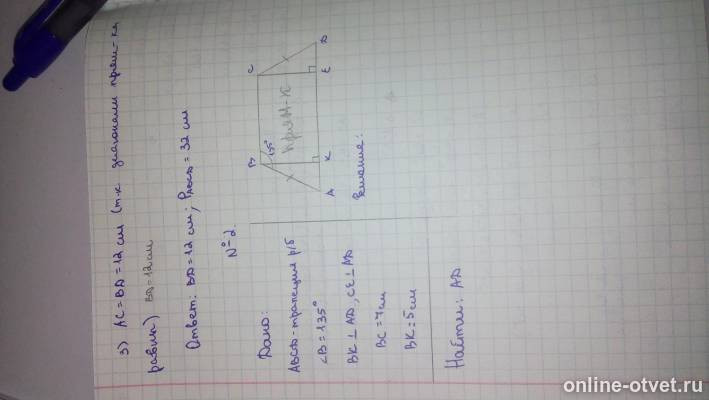 3) AC = BD = 12 см (т.к. диагонали прям-ка
равны) BD = 12 см
Ответ: BD = 12 см; PABCD = 32 см
№2.
Дано:
ABCD - трапеция р/б
∠B = 135°
BK ⊥ AD, CE ⊥ AD
BC = 4 см
BK = 5 см
Найти: AD
B
C
135°
прям-к
A
K
E
D
Решение:
online-otvet.ru